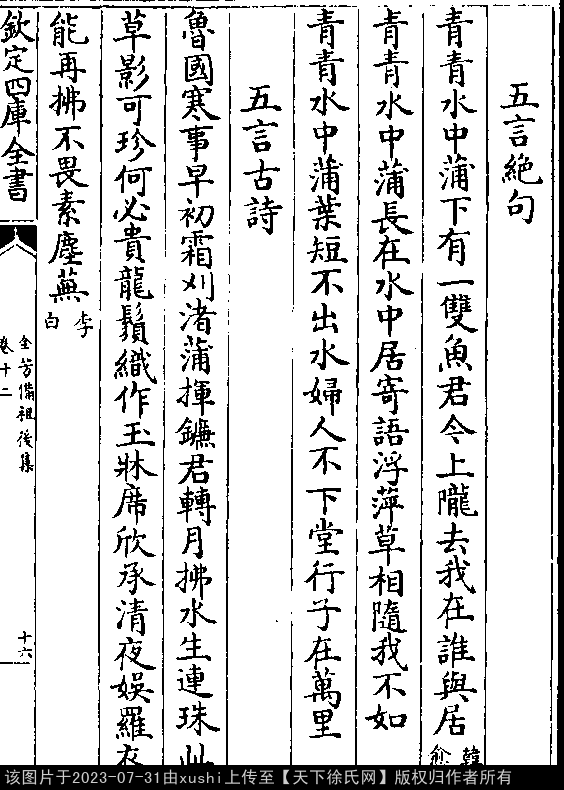 五言絕句
青青水中蒲下有一雙魚君今上隴去我在誰與居 韓愈
青青水中蒲長在水中居寄語浮萍草相隨我不如
青青水中蒲葉短不出水婦人不下堂行子在萬里
五言古詩
魯國寒事早初霜刈渚蒲揮鐮君轉月拂水生連珠此
草影可珍何必貴龍鬚織作玉牀席欣承清夜娛羅衣
能再拂不畏素塵蕪 李白
欽定四庫全書
全芳備祖後集
卷十二
十六
该图片于2023-07-31由xushi上传至【天下徐氏网】版权归作者所有